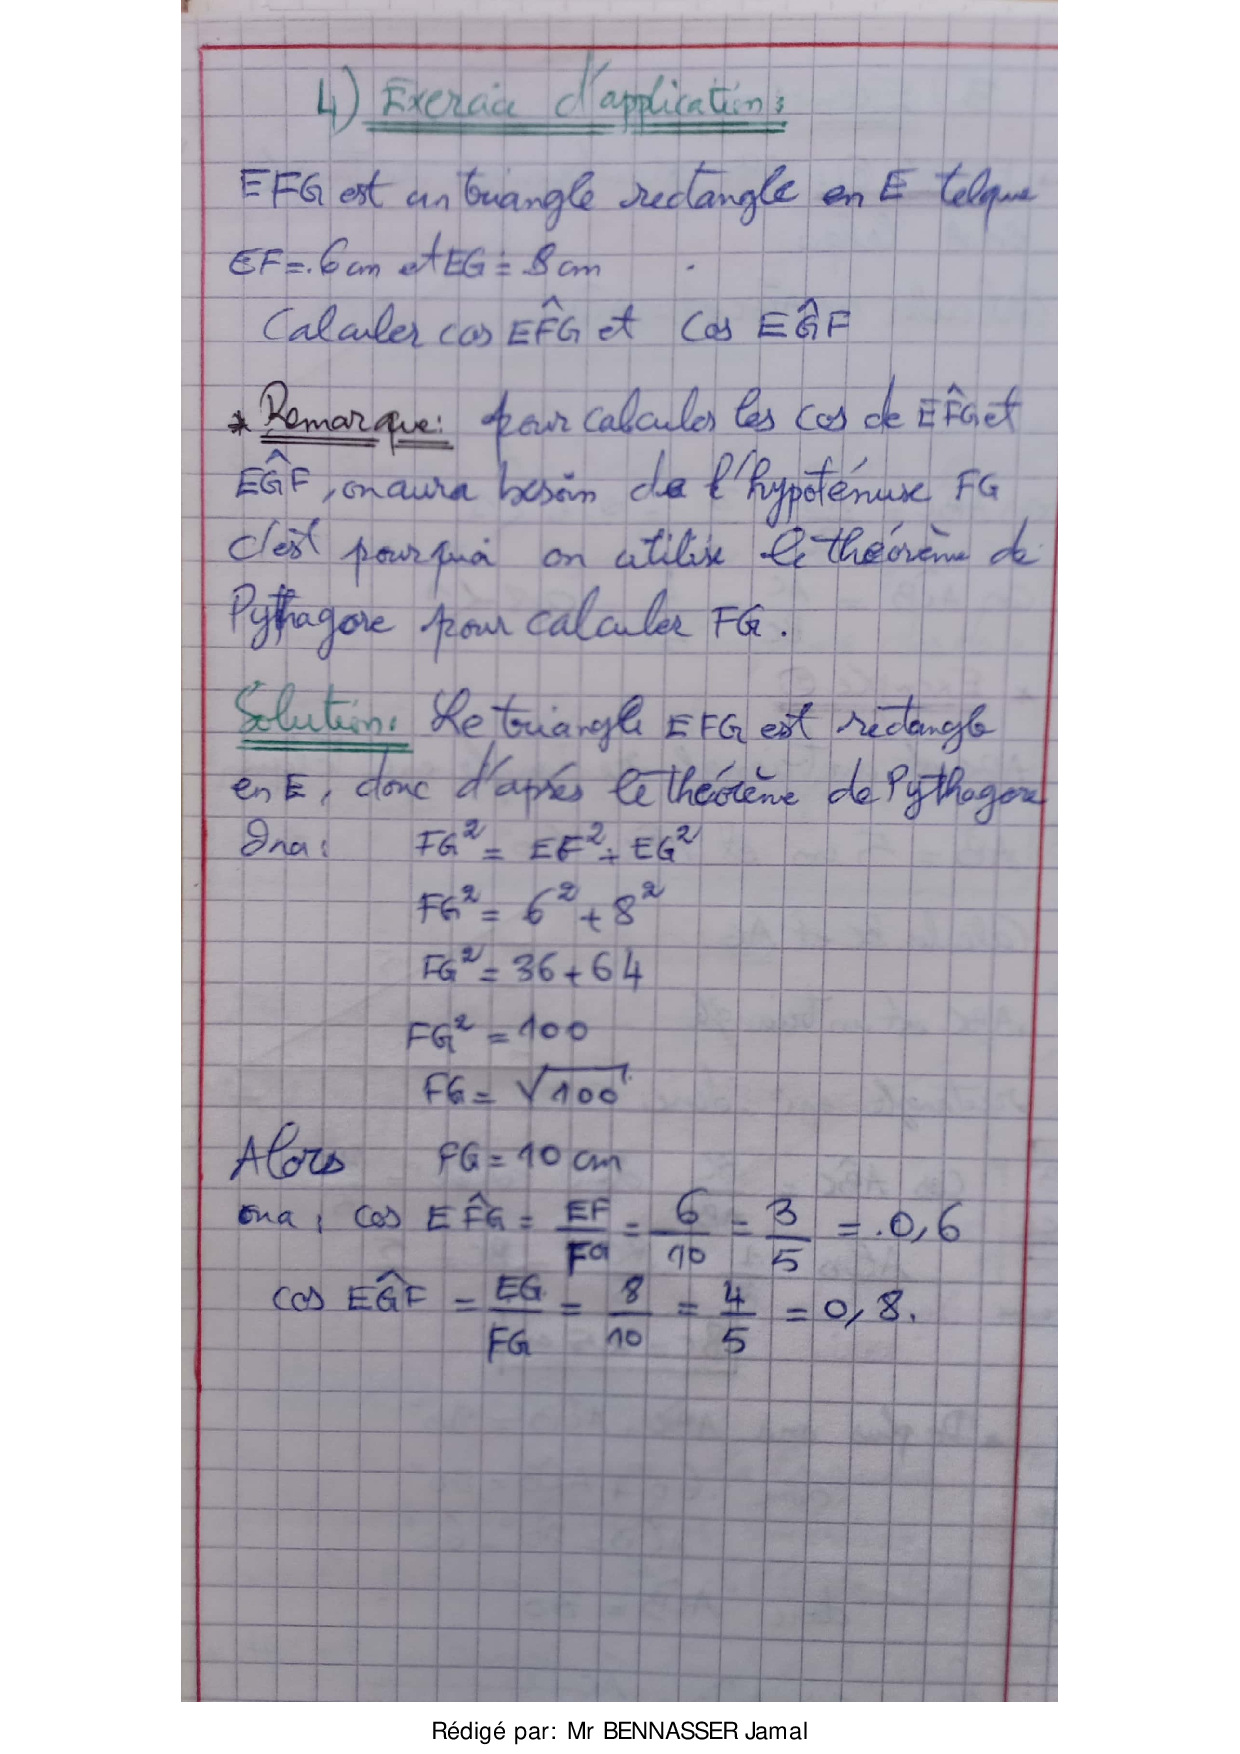 4) Exercice d'application:
EFG est un triangle rectangle en E telque
EF=.6cm et EG = 8cm
Calculer cos EF̂G et cos EĜF
* Remarque: pour calculer les cos de EF̂G et
EĜF, on aura besoin de l'hypoténuse FG
c'est pourquoi on utilise le théorème de
Pythagore pour calculer FG.
Solution: Le triangle EFG est rectangle
en E, donc d'après le théorème de Pythagore
Ona: FG² = EF² + EG²
FG² = 6² + 8²
FG² = 36 + 64
FG² = 100
FG = √100
Alors FG = 10 cm
ona: cos EF̂G = EF/FG = 6/10 = 3/5 = .0,6
cos EĜF = EG/FG = 8/10 = 4/5 = 0,8.
Rédigé par: Mr BENNASSER Jamal